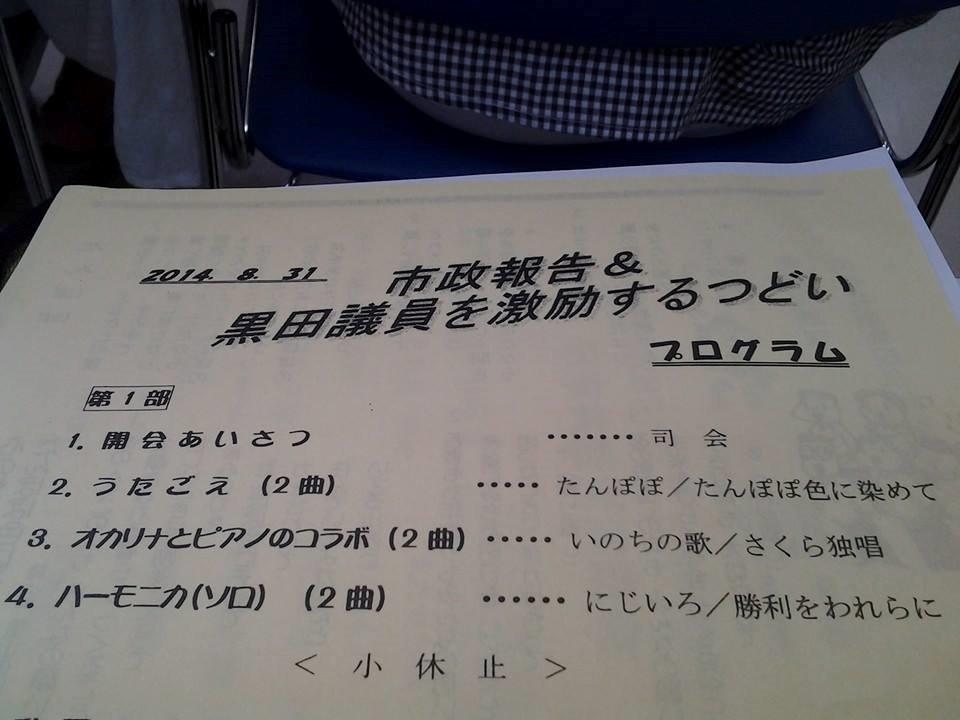 2014. 8. 31
市政報告＆
黒田議員を激励するつどい
プログラム
第１部
1. 開会あいさつ ・・・・・・・ 司会
2. うたごえ （２曲） ・・・・・ たんぽぽ／たんぽぽ色に染めて
3. オカリナとピアノのコラボ（２曲） ・・・・・ いのちの歌／さくら独唱
4. ハーモニカ（ソロ） （２曲） ・・・・・・ にじいろ／勝利をわれらに
＜ 小 休 止 ＞